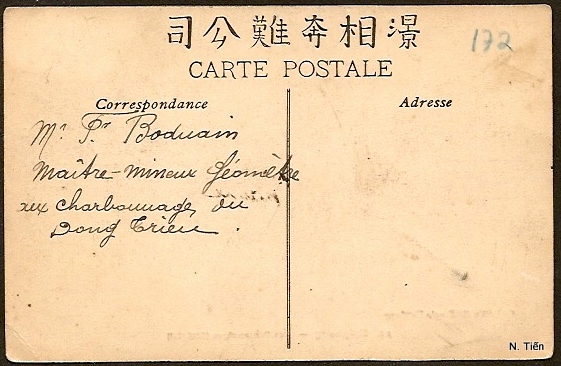 司公難奔相澋
172
CARTE POSTALE
Correspondance
Adresse
Mr Pr Boduain
Maître-mineur Géomètre
aux Charbonnages du
Dong Trieu.
N. Tiến